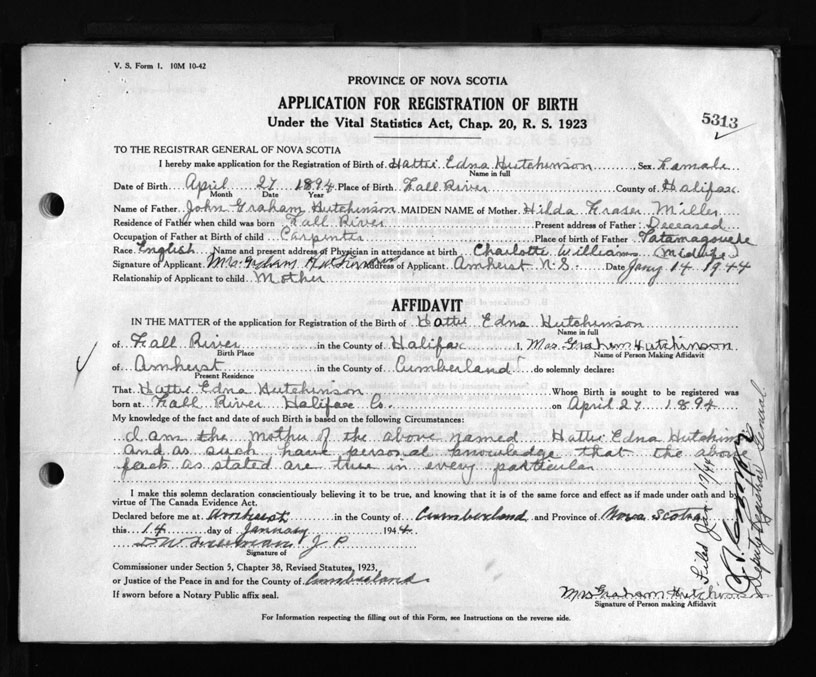 V. S. Form 1. 10M 10-42
PROVINCE OF NOVA SCOTIA
APPLICATION FOR REGISTRATION OF BIRTH
5313
Under the Vital Statistics Act, Chap. 20, R. S. 1923
TO THE REGISTRAR GENERAL OF NOVA SCOTIA
I hereby make application for the Registration of Birth of Hattie Edna Hutchinson Sex Female
Name in full
Date of Birth April 27 1894 Place of Birth Fall River County of Halifax
Month Date Year
Name of Father John Graham Hutchinson MAIDEN NAME of Mother Hilda Fraser Miller
Residence of Father when child was born Fall River Present address of Father: Deceased
Occupation of Father at Birth of child Carpenter Place of birth of Father Tatamagouche
Race English Name and present address of Physician in attendance at birth Charlotte Williams (Midwife)
Signature of Applicant Mrs. Graham Hutchinson Address of Applicant Amherst N.S. Date Jany 14 1944
Relationship of Applicant to child Mother
AFFIDAVIT
IN THE MATTER of the application for Registration of the Birth of Hattie Edna Hutchinson
Name in full
of Fall River in the County of Halifax I, Mrs. Graham Hutchinson
Birth Place Name of Person Making Affidavit
of Amherst in the County of Cumberland do solemnly declare:
Present Residence
That Hattie Edna Hutchinson Whose Birth is sought to be registered was
born at Fall River Halifax Co. on April 27 1894
My knowledge of the fact and date of such Birth is based on the following Circumstances:
I am the Mother of the above named Hattie Edna Hutchinson
and as such have personal knowledge that the above
facts as stated are true in every particular
I make this solemn declaration conscientiously believing it to be true, and knowing that it is of the same force and effect as if made under oath and by
virtue of The Canada Evidence Act.
Declared before me at Amherst in the County of Cumberland and Province of Nova Scotia
this 14 day of January 1944
J P
Signature of
Commissioner under Section 5, Chapter 38, Revised Statutes, 1923,
or Justice of the Peace in and for the County of Cumberland
If sworn before a Notary Public affix seal.
Mrs Graham Hutchinson
Signature of Person making Affidavit
For Information respecting the filling out of this Form, see Instructions on the reverse side.
Filed Jan 17/44
Deputy Registrar General